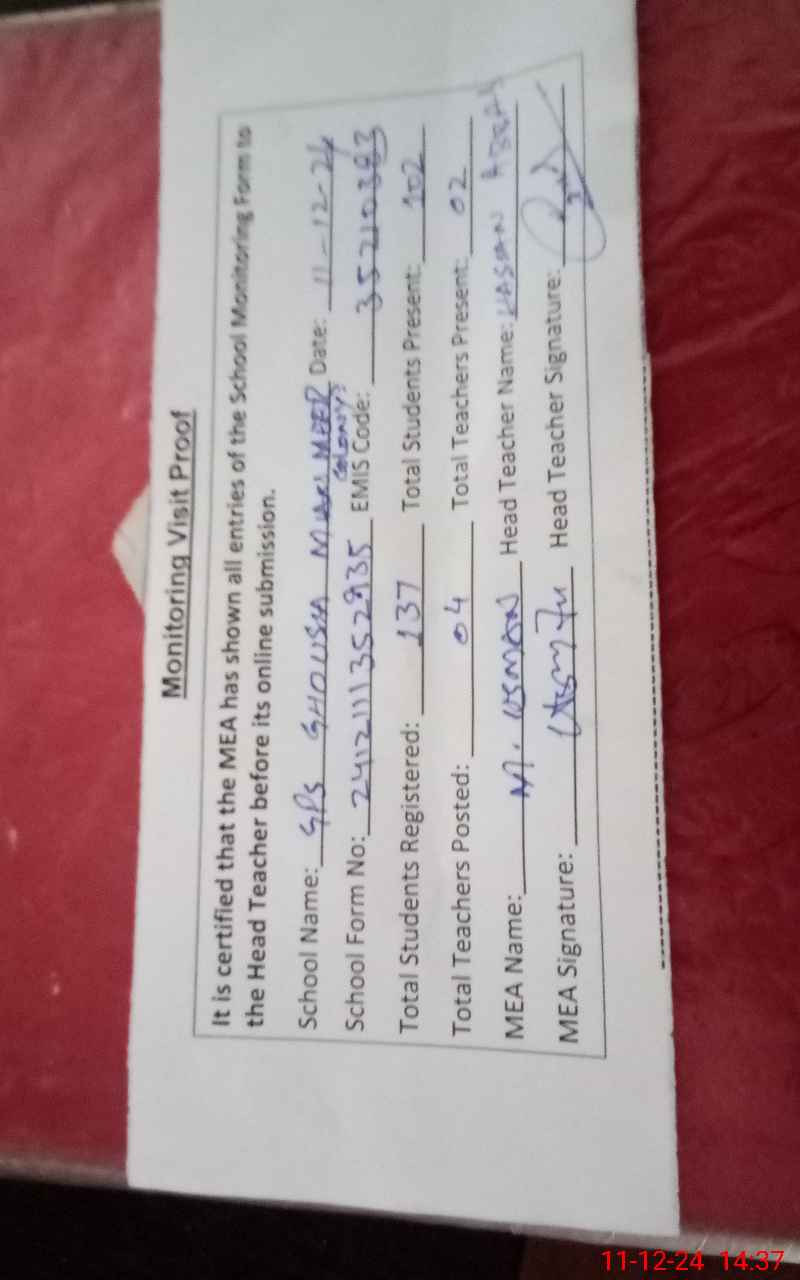 Monitoring Visit Proof
It is certified that the MEA has shown all entries of the School Monitoring Form to
the Head Teacher before its online submission.
School Name: GPS GHOUSIA MIAN MEER COLONY Date: 11-12-24
School Form No: 2412111352935 EMIS Code: 35210383
Total Students Registered: 137 Total Students Present: 102
Total Teachers Posted: 04 Total Teachers Present: 02
MEA Name: M. USMAN Head Teacher Name: HASAN
MEA Signature: Head Teacher Signature:
11-12-24 14:37